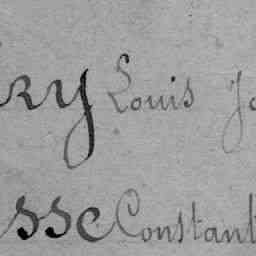 ry Louis Jo
sse Constant